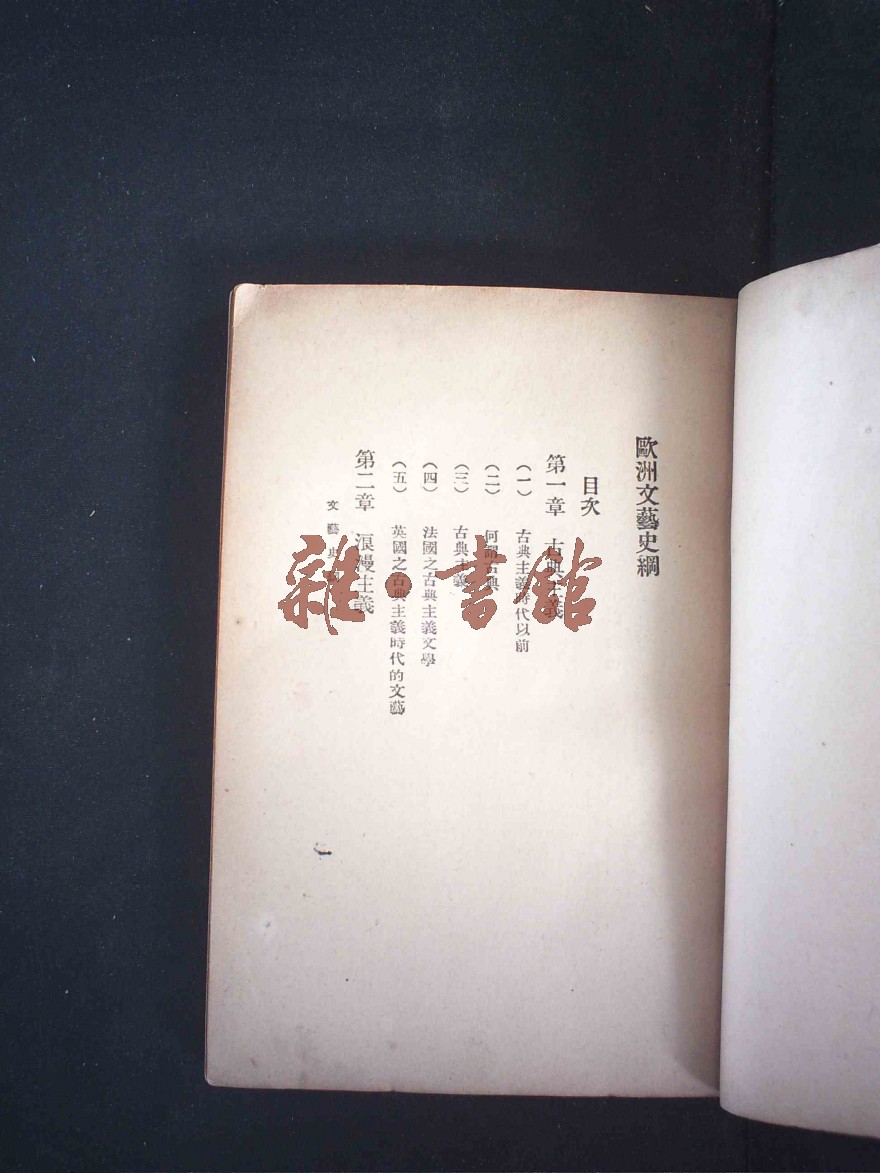 歐洲文藝史綱
目次
第一章 古典主義
（一） 古典主義時代以前
（二） 何謂古典
（三） 古典主義
（四） 法國之古典主義文學
（五） 英國之古典主義時代的文藝
第二章 浪漫主義
文藝史
一
雜·書館